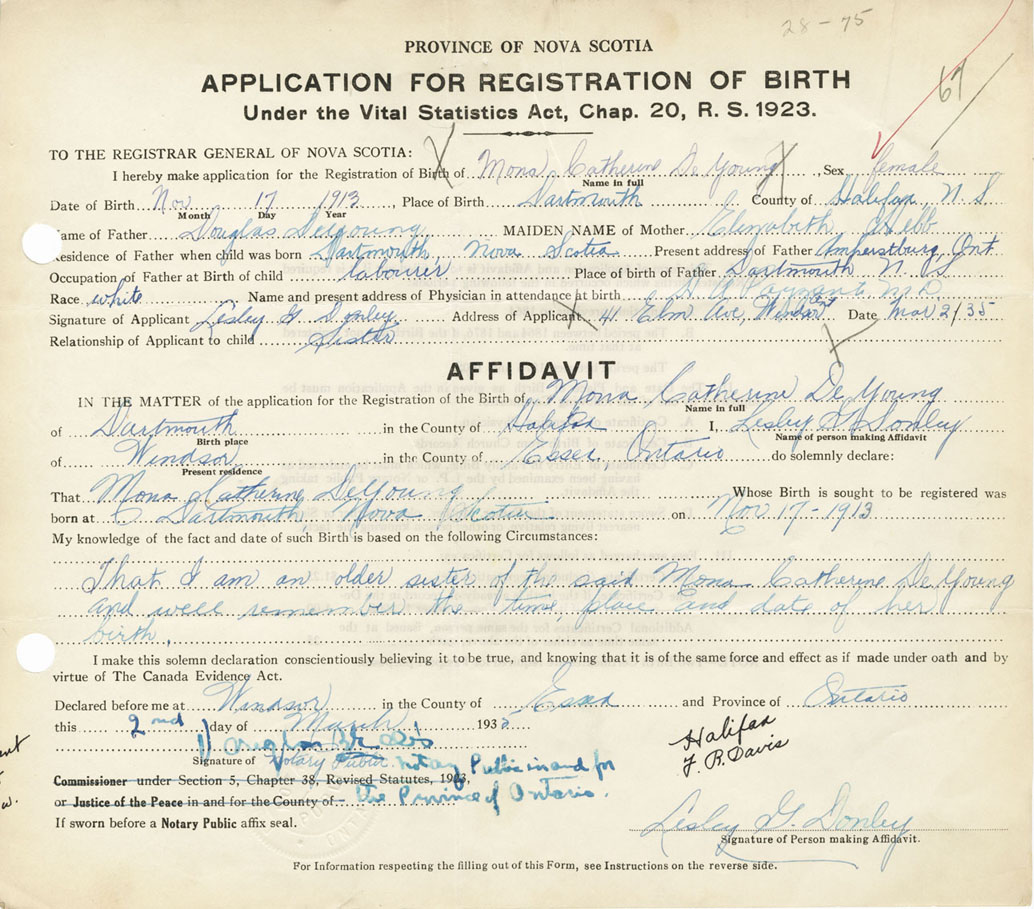 28 - 75
PROVINCE OF NOVA SCOTIA
APPLICATION FOR REGISTRATION OF BIRTH
67
Under the Vital Statistics Act, Chap. 20, R. S. 1923.
TO THE REGISTRAR GENERAL OF NOVA SCOTIA:
I hereby make application for the Registration of Birth of Mona Catherine De Young, Sex female
Name in full
Date of Birth Nov 17 1913, Place of Birth Dartmouth County of Halifax, N. S
Month Day Year
Name of Father Douglas DeYoung MAIDEN NAME of Mother Elizabeth Webb
Residence of Father when child was born Dartmouth, Nova Scotia Present address of Father Amherstburg, Ont
Occupation of Father at Birth of child labourer Place of birth of Father Dartmouth N. S
Race white Name and present address of Physician in attendance at birth M D
Signature of Applicant Lesley G Donley Address of Applicant 41 Elm Ave, Windsor Date Mar 2/35
Relationship of Applicant to child Sister
AFFIDAVIT
IN THE MATTER of the application for the Registration of the Birth of Mona Catherine De Young
Name in full
of Dartmouth in the County of Halifax I, Lesley G Donley
Birth place Name of person making Affidavit
of Windsor in the County of Essex Ontario do solemnly declare:
Present residence
That Mona Catherine DeYoung Whose Birth is sought to be registered was
born at Dartmouth, Nova Scotia on Nov 17 - 1913
My knowledge of the fact and date of such Birth is based on the following Circumstances:
That I am an older sister of the said Mona Catherine DeYoung
and well remember the time place and date of her
birth.
I make this solemn declaration conscientiously believing it to be true, and knowing that it is of the same force and effect as if made under oath and by
virtue of The Canada Evidence Act.
Declared before me at Windsor in the County of Essex and Province of Ontario
this 2nd day of March 1935
Halifax
F. R. Davis
Signature of Notary Public Notary Public in and for
Commissioner under Section 5, Chapter 38, Revised Statutes, 1923,
or Justice of the Peace in and for the County of the Province of Ontario.
If sworn before a Notary Public affix seal.
Lesley G. Donley
Signature of Person making Affidavit.
For Information respecting the filling out of this Form, see Instructions on the reverse side.